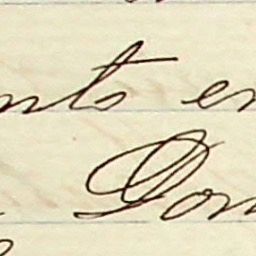 nts en
Don